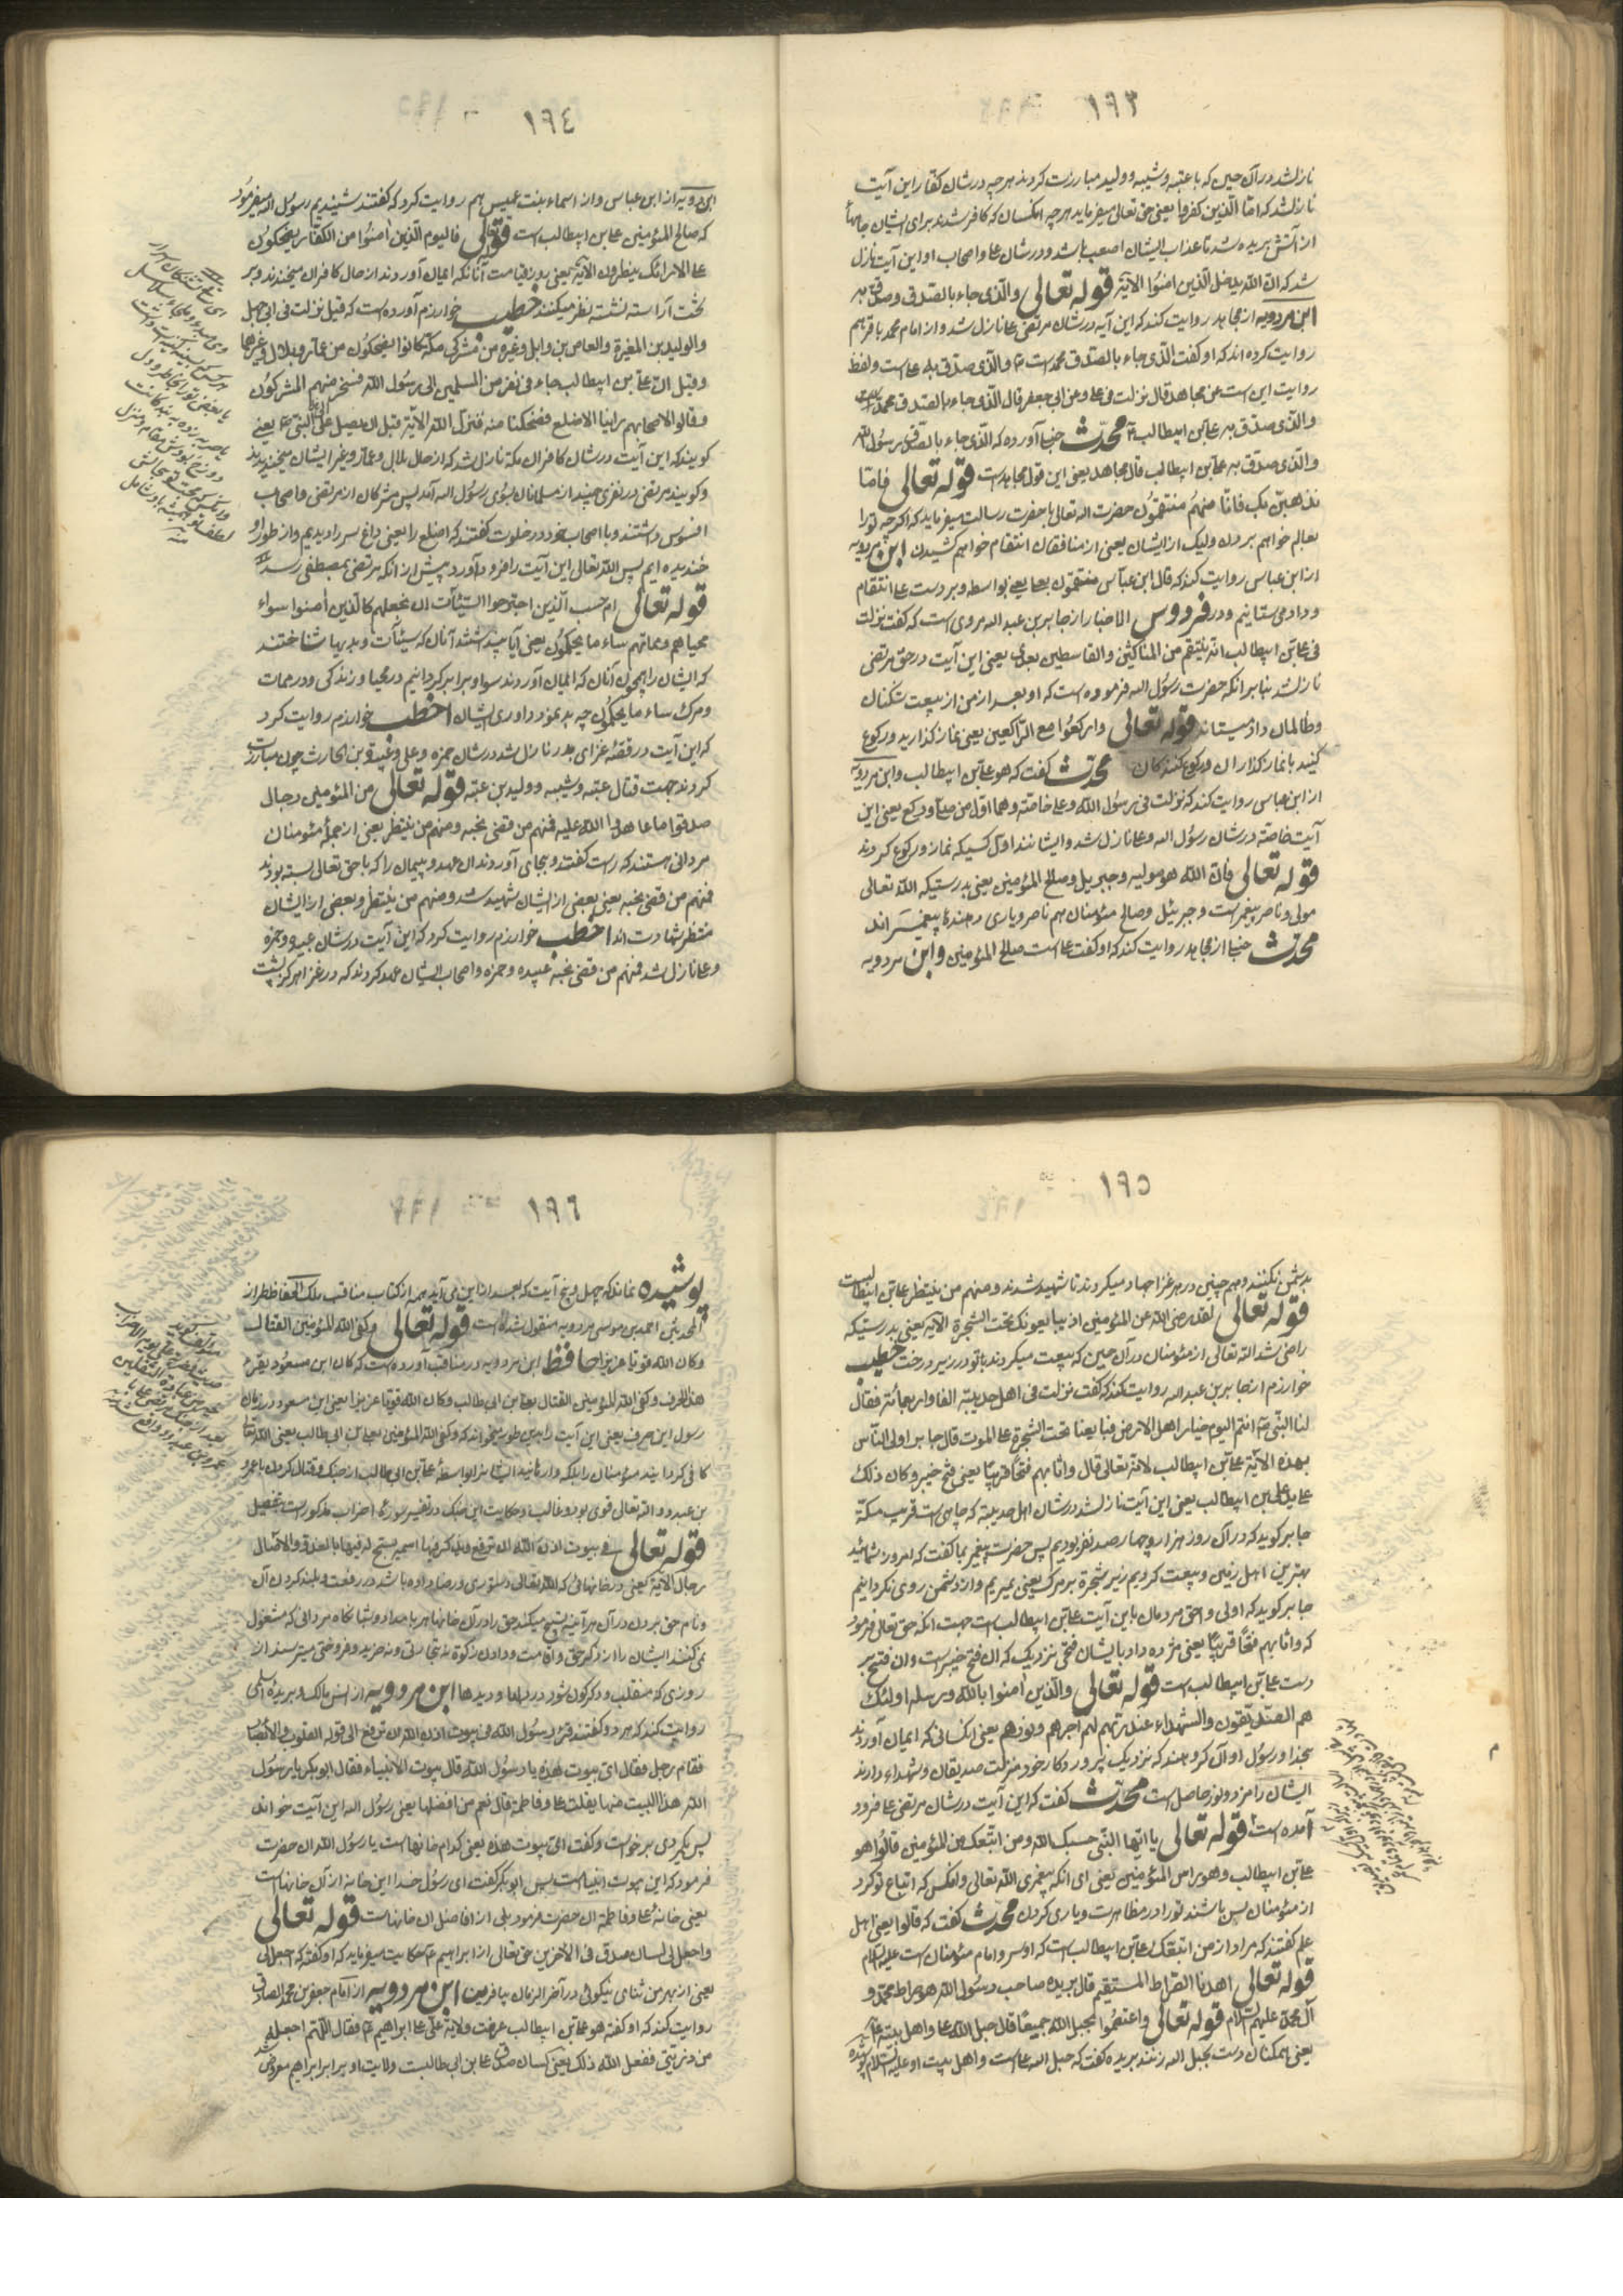 ١٩٣
نازل شد در آن حین که با عتبه و شیبه و ولید مبارزت کردند هرچه در شان کفار این آیت
نازل شد که امّا الّذین کفروا یعنی حق تعالی میفرماید هرچه آنکسان که کافر شدند برای ایشان جامها
از آتش بریده شد تا عذاب ایشان اصعب باشد و در شان علی و اصحاب او این آیت نازل
شد که انّ الله یدخل الّذین امنُوا الآیة قوله تعالی والّذی جاء بالصّدق وصدّق به
ابن مردویه از مجاهد روایت کند که این آیه در شان مرتضی علی نازل شد و از امام محمد باقر هم
روایت کرده اند که او گفت الّذی جاء بالصّدق محمد است و الّذی صدّق به علی است و لفظ
روایت این است عن مجاهد قال نزلت فی علی و عن ابی جعفر قال الّذی جاء بالصّدق محمد
والّذی صدّق به علی بن ابیطالب محدّث حنبلی آورده که الّذی جاء بالصّدق رسُول الله
والّذی صدّق به علی بن ابیطالب قال مجاهد یعنی این قول مجاهد است قوله تعالی فامّا
نذهبنّ بک فانّا منهُم منتقمُون حضرت اله تعالی با حضرت رسالت میفرماید که اگر چه تو را
بعالم خواهم بردن ولیک از ایشان یعنی از منافقان انتقام خواهم کشیدن ابن مردویه
از ابن عباس روایت کند که قال ابن عبّاس منتقمون بعلی یعنی بواسطه و بر دست علی انتقام
و داد می ستانیم و در فردوس الاخبار از جابر بن عبد اله مروی است که گفت نزلت
فی علی بن ابیطالب انّه ینتقم من الناکثین والقاسطین بعدی یعنی این آیت در حق مرتضی
نازل شد بنابر آنکه حضرت رسُول اله فرموده است که او بعد از من از بیعت شکنان
و ظالمان داد میستاند قوله تعالی وارکعُوا مع الرّاکعین یعنی نماز گذارید و رکوع
کنید با نماز گذاران و رکوع کنندگان محدّث گفت که هو علی بن ابیطالب وابن مردویه
از ابن عباس روایت کند که نزلت فی رسُول الله وعلی خاصّة وهما اوّل من صلّی ورکع یعنی این
آیت خاصّه در شان رسُول اله و علی نازل شد و ایشانند اوّل کسیکه نماز و رکوع کردند
قوله تعالی فانّ الله هو مولیه وجبریل وصالح المُؤمنین یعنی بدرستیکه الله تعالی
مولی و ناصر پیغمبر است و جبرئیل و صالح مؤمنان هم ناصر و یاری دهنده پیغمبرَ اند
محدّث حنبلی از مجاهد روایت کند که او گفت علی است صالح المُؤمنین و ابن مردویه
١٩٤
ابن مردویه از ابن عباس و از اسماء بنت عمیس هم روایت کرد که گفتند شنیدیم رسُول اله میفرمُود
که صالح المُؤمنین علی بن ابیطالب است قوله تعالی فالیوم الّذین امنُوا من الکفّار یضحکون
علی الارائک ینظرون الآیة یعنی روز قیامت آنانکه ایمان آوردند از حال کافران میخندند و بر
تخت آراسته نشسته نظر میکنند خطیب خوارزم آورده است که قیل نزلت فی ابی جهل
والولید بن المغیرة والعاص بن وابل وغیره من مشرکی مکّة کانوا یضحکون من عمّار وبلال وغیرهما
وقیل انّ علی بن ابیطالب جاء فی نفر من المسلمین الی رسُول الله فسخر منهم المشرکُون
وقالوا لاصحابهم راینا الاضلع فضحکنا منه فنزل الله الآیة قبل ان یصل علی الی النّبی یعنی
گویند که این آیت در شان کافران مکّه نازل شد که از حال بلال و عمّار و غیر ایشان میخندیدند
و گویند مرتضی در نفری چند از مسلمانان بسُوی رسُول اله آمد پس مشرکان از مرتضی و اصحاب
افسوس داشتند و با اصحاب خود در خلوت گفتند که اضلع را یعنی داغ سر را دیدیم و از طور او
خندیده ایم پس الله تعالی این آیت را فرود آورد پیش از آنکه مرتضی بمصطفی رسد
قوله تعالی ام حسب الّذین اجترحوا السّیئات ان نجعلهم کالّذین امنوا سواء
محیاهم ومماتهم ساء ما یحکمُون یعنی آیا پنداشتند آنان که سیئات و بدیها شناختند
که ایشان را همچون آنان که ایمان آوردند سوا و برابر گردانیم در محیا و زندگی و در ممات
و مرگ ساء ما یحکُمون چه بد بود داوری ایشان اخطب خوارزم روایت کرد
که این آیت در قصّهٔ غزای بدر نازل شد در شان حمزه و علی و عبیدة بن الحارث چون مبارزت
کردند جهت قتال عتبه و شیبه و ولید بن عتبه قوله تعالی من المُؤمنین رجال
صدقوا ما عاهدوا الله علیه فمنهم من قضی نحبه ومنهم من ینتظر یعنی از جملهٔ مئومنان
مردانی هستند که راست گفتند و بجای آوردند آن عهد و پیمان را که با حق تعالی بسته بودند
فمنهم من قضی نحبه یعنی بعضی از ایشان شهید شد و منهم من ینتظر و بعضی از ایشان
منتظر شهادت اند اخطب خوارزم روایت کرد که این آیت در شان عبیده و حمزه
و علی نازل شد فمنهم من قضی نحبه عبیده و حمزه و اصحاب ایشان عهد کردند که در غزا هرگز پشت
١٩٥
بدشمن نکنند و هم چنین در هر غزا جهاد میکردند تا شهید شدند و منهم من ینتظر علی بن ابیطالبست
قوله تعالی لقد رضی الله عن المُؤمنین اذ یبایعونک تحت الشّجرة الآیة یعنی بدرستیکه
راضی شد الله تعالی از مئومنان در آن حین که بیعت میکردند با تو در زیر درخت خطیب
خوارزم از جابر بن عبد اله روایت کند که گفت نزلت فی اهل حدیبیّة الفا واربعمائة فقال
لنا النّبی انتم الیوم خیار اهل الارض فبایعنا تحت الشّجرة علی الموت قال جابر اولی النّاس
بهذه الآیة علی بن ابیطالب لانّه تعالی قال واثابهم فتحًا قریبًا یعنی فتح خیبر وکان ذلک
علی ید علی بن ابیطالب یعنی این آیت نازل شد در شان اهل حدیبیة که چاهی است قریب مکّه
جابر گوید که در آن روز هزار و چهار صد نفر بودیم پس حضرت پیغمبر بما گفت که امروز شمائید
بهترین اهل زمین و بیعت کردیم زیر شجرة بر مرگ یعنی بمیریم و از دشمن روی نگردانیم
جابر گوید که اولی و احق مردمان باین آیت علی بن ابیطالب است جهت آنکه حق تعالی فرمود
که واثابهم فتحًا قریبًا یعنی مژده داد بایشان فتحی نزدیک که آن فتح خیبر است و آن فتح بر
دست علی بن ابیطالب است قوله تعالی والّذین امنوا بالله ورسله اولئک
هم الصّدّیقون والشّهداء عند ربّهم لهم اجرهم ونورهم یعنی آنکسانی که ایمان آوردند
بخدا و رسُول او آن گروهند که نزدیک پروردگار خود منزلت صدیقان و شهداء دارند
ایشان را مزد و نور حاصل است محدّث گفت که این آیت در شان مرتضی علی فرود
آمده است قوله تعالی یا ایّها النّبی حسبک الله ومن اتّبعک من المُؤمنین قالُوا هو
علی بن ابیطالب وهو راس المُؤمنین یعنی ای آنکه پیغمبری الله تعالی و آنکس که اتباع تو کرد
از مئومنان بس باشند تو را در مظاهرت و یاری کردن محدّث گفت که قالوا یعنی اهل
علم گفتند که مراد از من اتبعک علی بن ابیطالب است که او سر و امام مئومنان است علیه السلام
قوله تعالی اهدنا الصّراط المستقیم قال بریده صاحب رسُول الله هو صراط محمّد و
آل محمّد علیهم السلام قوله تعالی واعتصُموا بحبل الله جمیعًا قال حبل الله علی واهل بیته
یعنی همگنان دست بحبل اله زنند بریده گفت که حبل اله علی است و اهل بیت او علیه السلام
پوشیده
١٩٦
پوشیده نماند که چهل و پنج آیت که بعد از این می آید هم از کتاب مناقب ملک الحفاظ طراز
المحدثین احمد بن موسی مردویه منقول شده است قوله تعالی وکفی الله المُؤمنین القتال
وکان الله قویا عزیزا حافظ ابن مردویه در مناقب آورده است که کان ابن مسعُود یقرء
هذا الحرف وکفی الله المُؤمنین القتال بعلی بن ابی طالب وکان الله قویّا عزیزا یعنی ابن مسعود در زمان
رسول این حرف یعنی این آیت را بدین طور میخواند که وکفی الله المُؤمنین بعلی بن ابی طالب یعنی الله تعالی
بن عبدود و الله تعالی قوی بود و غالب و حکایت این جنگ در تفسیر سورهٔ احزاب مذکور است بتفصیل
قوله تعالی فی بیوت اذن الله ان ترفع ویذکر فیها اسمه یسبّح له فیها بالغدوّ والآصال
رجال الآیة یعنی در خانهائی که الله تعالی دستوری و رضا داده باشد در رفعت و بلند کردن آن
و نام حق بردن در آن هر آینه تسبیح میکنند حق را در آن خانها هر بامداد و شبانگاه مردانی که مشغول
نمی کنند ایشان را از ذکر حق و اقامت و دادن زکوة نه تجارتی و نه خرید و فروختی میترسند از
روزی که منقلب و دگرگون شود در او دلها و دیدها ابن مردویه از انس بن مالک و بریدهٔ اسلمی
روایت کند که هر دو گفتند قرء رسُول الله فی بیوت اذن الله ان ترفع الی قوله القلوب والابصار
فقام رجل فقال ایّ بیوت هذه یا رسُول الله قال بیوت الانبیاء فقال ابوبکر یا رسُول
الله هذا البیت منها یعنی بیت علی وفاطمة قال نعم من افضلها یعنی رسُول اله این آیت خواند
پس یکمردی برخواست و گفت ایّ بیوت هذه یعنی کدام خانهاست یا رسُول الله آن حضرت
فرمود که این بیوت انبیاست پس ابو بکر گفت ای رسُول خدا این خانه از آن خانهاست
یعنی خانهٔ علی و فاطمة آن حضرت فرمود بلی از افاضل آن خانهاست قوله تعالی
واجعل لی لسان صدق فی الآخرین حق تعالی از ابراهیم حکایت میفرماید که او گفته که اجعل لی
یعنی از بهر من ثنای نیکوئی در آخر الزمان بیافرین ابن مردویه از امام جعفر بن محمد الصادق
روایت کند که او گفته هو علی بن ابیطالب عرضت ولایة علی علی ابراهیم فقال اللّهم اجعله
من ذریّتی ففعل الله ذلک یعنی لسان صدق علی بن ابی طالبست ولایت او بر ابراهیم معروض